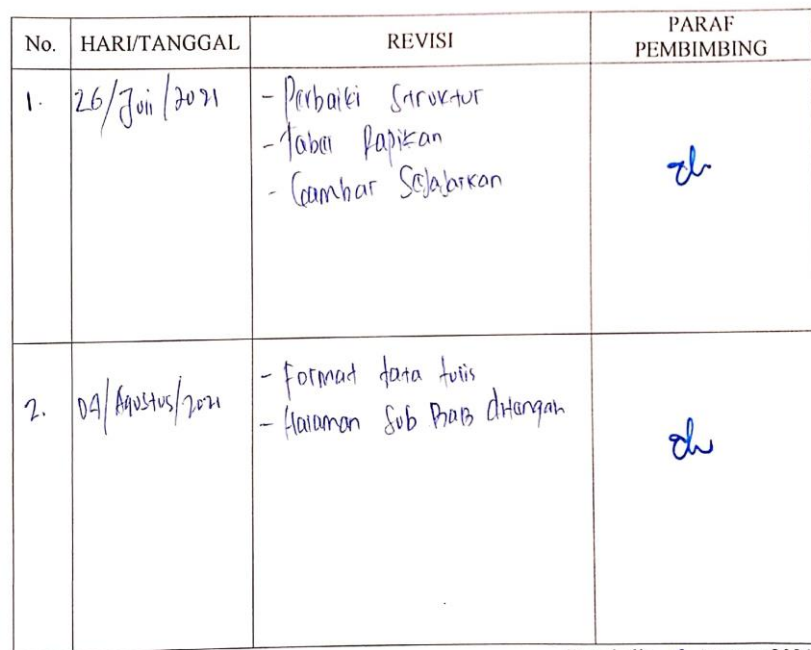 No. HARI/TANGGAL REVISI PARAF PEMBIMBING
1. 26/Juli/2021 - Perbaiki Struktur
- Tabel Rapikan
- Gambar Sejajarkan
2. 04/Agustus/2021 - Format tata tulis
- Halaman Sub Bab ditengah